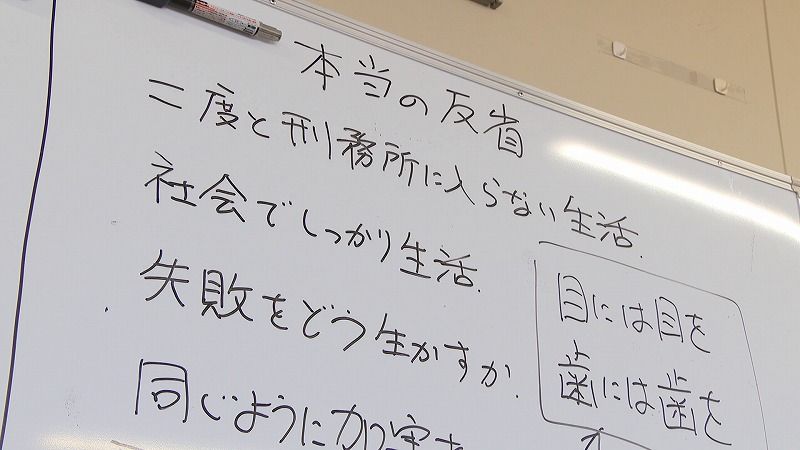 本当の反省
二度と刑務所に入らない生活.
社会でしっかり生活.
失敗をどう生かすか.
同じように加害を
目には目を
歯には歯を